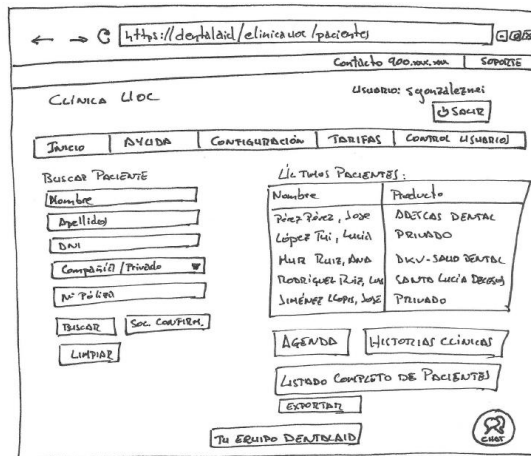 https://dentalaid/clinicauoc/pacientes
Contacto 900.xxx.xxx SOPORTE
CLÍNICA UOC
USUARIO: sgonzaleznei
SALIR
INICIO AYUDA CONFIGURACIÓN TARIFAS CONTROL USUARIOS
BUSCAR PACIENTE
Nombre
Apellidos
DNI
Compañía / Privado
Nº Póliza
BUSCAR SOL. CONFIRM.
LIMPIAR
ÚLTIMOS PACIENTES:
Nombre Producto
Pérez Pérez, Jose ADESLAS DENTAL
López Tui, Lucía PRIVADO
Ruiz, Ana DKV-SALUD DENTAL
RODRIGUEZ Ruiz, SANTA LUCÍA DECESOS
JIMÉNEZ LLOPIS, JOSE PRIVADO
AGENDA HISTORIAS CLÍNICAS
LISTADO COMPLETO DE PACIENTES
EXPORTAR
TU EQUIPO DENTALAID
CHAT